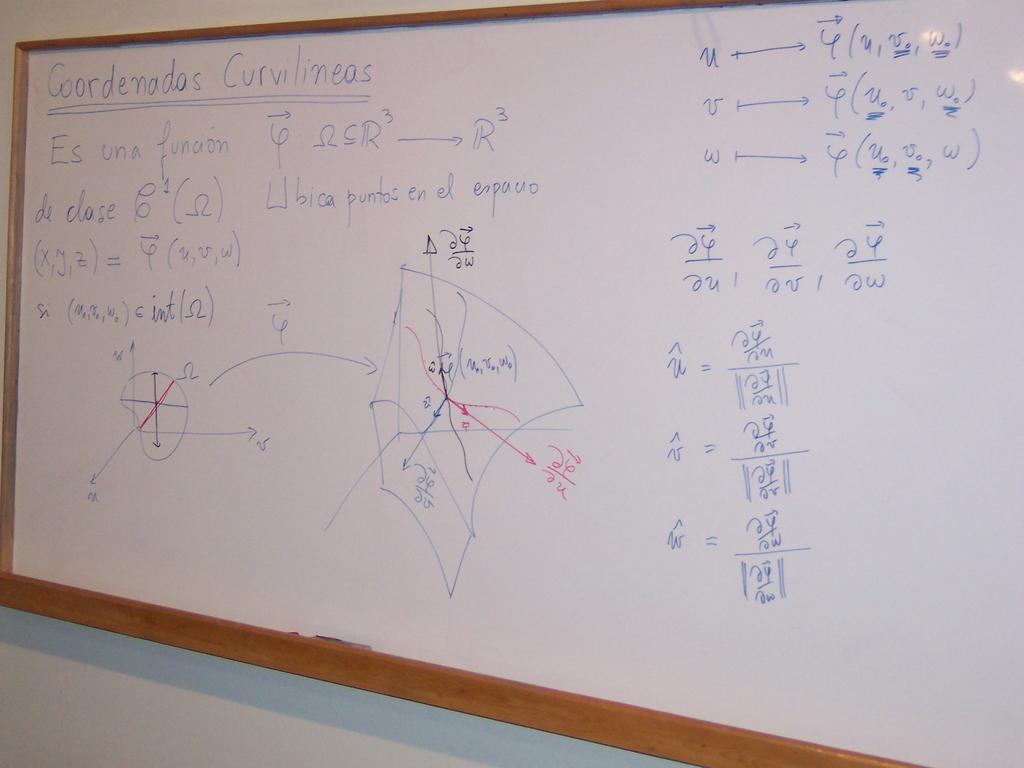 Coordenadas Curvilíneas
Es una función φ⃗ Ω⊆ℝ³ ⟶ ℝ³
de clase 𝒞¹(Ω) Ubica puntos en el espacio
(x,y,z) = φ⃗(u,v,w)
si (u₀,v₀,w₀) ∈ int(Ω)
φ⃗
w
Ω
v
u
∂φ⃗/∂w
φ⃗(u₀,v₀,w₀)
∂φ⃗/∂v
∂φ⃗/∂u
u ⟼ φ⃗(u, v₀, w₀)
v ⟼ φ⃗(u₀, v, w₀)
w ⟼ φ⃗(u₀, v₀, w)
∂φ⃗/∂u, ∂φ⃗/∂v, ∂φ⃗/∂w
û = ∂φ⃗/∂u / ‖∂φ⃗/∂u‖
v̂ = ∂φ⃗/∂v / ‖∂φ⃗/∂v‖
ŵ = ∂φ⃗/∂w / ‖∂φ⃗/∂w‖